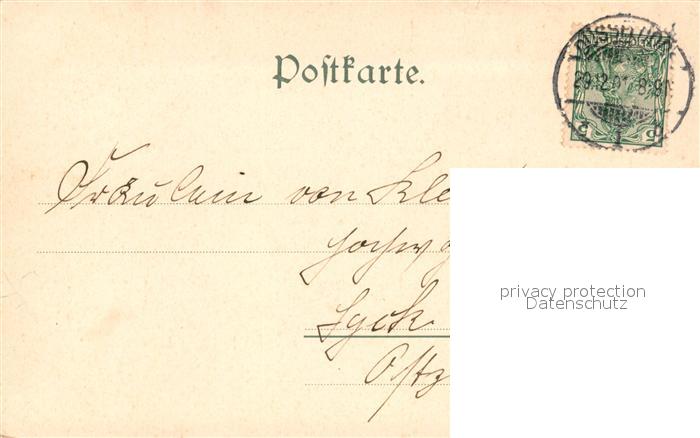 Postkarte.
29.12.01. 8-9
5 5
Fräulein von Kle
Hochw
Lyck
Ostp
privacy protection
Datenschutz